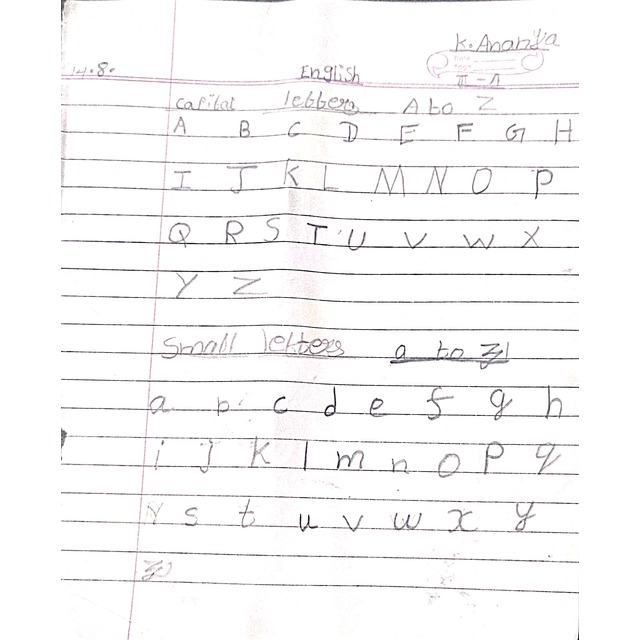 K. Ananya
14.8.
English
II - A
Capital letters A to Z
A B C D E F G H
I J K L M N O P
Q R S T U V W X
Y Z
Small letters a to z
a b c d e f g h
i j k l m n o p q
r s t u v w x y
z